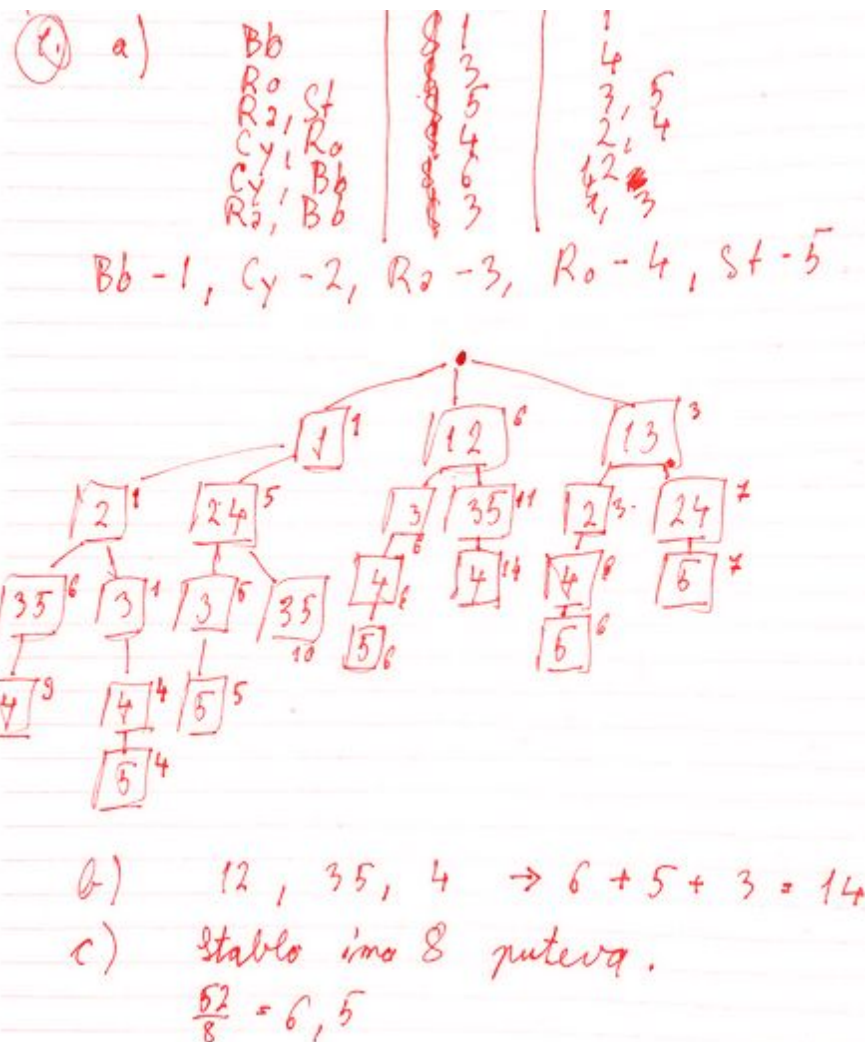 1. a)
Bb 1 1
Ro 3 4
Ra, St 5 3, 5
Cy, Ro 4 2, 4
Cy, Bb 6 1, 2
Ra, Bb 3 1, 3
Bb - 1, Cy - 2, Ra - 3, Ro - 4, St - 5
1 1 12 6 13 3
2 1 24 5 3 6 35 11 2 3 24 7
35 6 3 1 3 5 35 10 4 6 4 14 4 6 5 7
4 9 4 4 5 5 5 6 5 6
5 4
b) 12, 35, 4 → 6 + 5 + 3 = 14
c) Stablo ima 8 puteva.
52/8 = 6,5